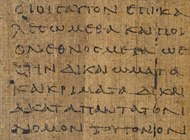 ϹΙΟΙϹΕΑΥΤΟΝ ΕΠΙΚΑ
ΛΕϹΩΜΕΘΑ ΚΑΙ ΠΟΙ
ΟΝ ΕΘΝΟϹ ΜΕΓΑ ΩΕ
ϹΤΙΝ ΔΙΚΑΙΩΜΑΤΑ
ΚΑΙ ΚΡΙΜΑΤΑ ΔΙΚΑΙ
Α ΚΑΤΑ ΠΑΝΤΑ ΤΟΝ
ΝΟΜΟΝ ΤΟΥΤΟΝ ΟΝ